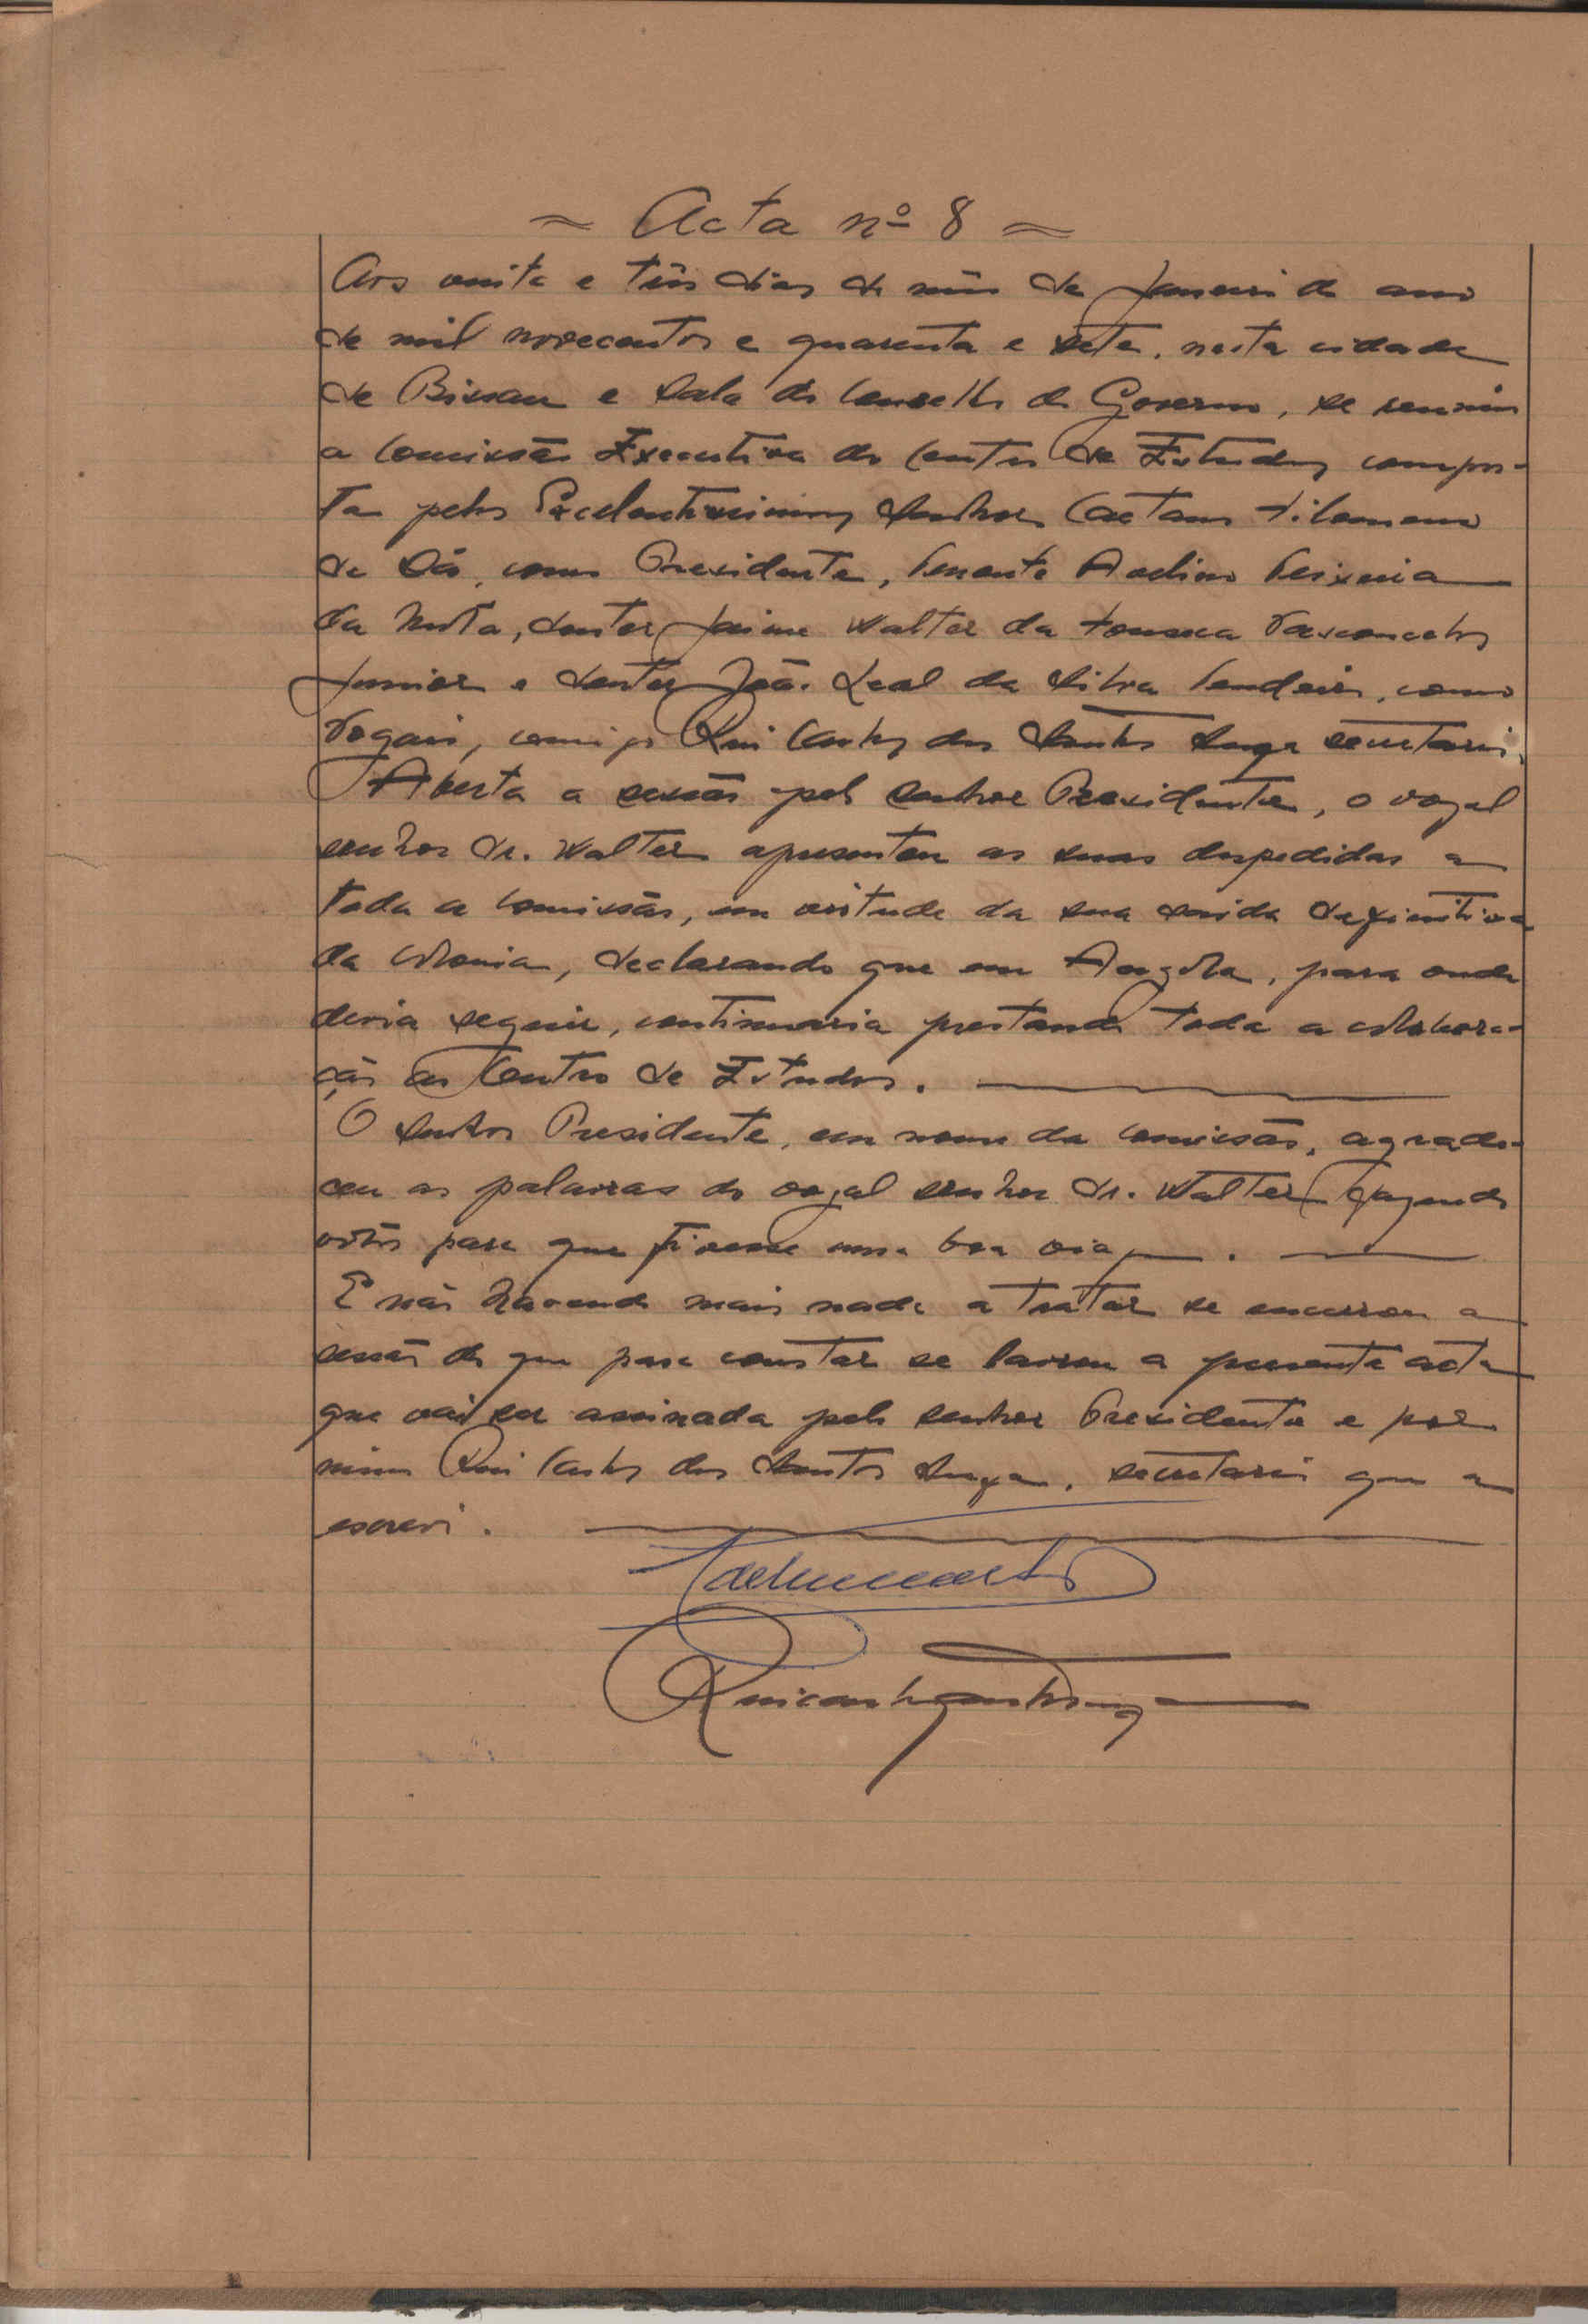 Acta nº 8
Aos vinte e três dias do mês de Janeiro do ano
de mil novecentos e quarenta e sete, nesta cidade
de Bissau e sala do Conselho do Governo, se reuniu
a Comissão Executiva do Centro de Estudos compos-
ta pelos Excelentissimos Senhores Caetano Filomeno
de Sá, como Presidente, Tenente Avelino Teixeira
da Mota, doutor Jaime Walter da Fonseca Vasconcelos
Junior e doutor João Leal da Silva Tendeiro, como
Vogais, comigo Rui Carlos dos Santos secretario.
Aberta a sessão pelo senhor Presidente, o vogal
senhor dr. Walter apresentou as suas despedidas a
toda a Comissão, em virtude da sua saida definitiva
da Colonia, declarando que em Angola, para onde
devia seguir, continuaria prestando toda a colabora-
ção ao Centro de Estudos.
O senhor Presidente, em nome da Comissão, agrade-
ceu as palavras do vogal senhor dr. Walter fazendo
votos para que tivesse uma boa viagem.
E não havendo mais nada a tratar se encerrou a
sessão do que para constar se lavrou a presente acta
que vai ser assinada pelo senhor Presidente e por
mim Rui Carlos dos Santos, secretario que a
escrevi.